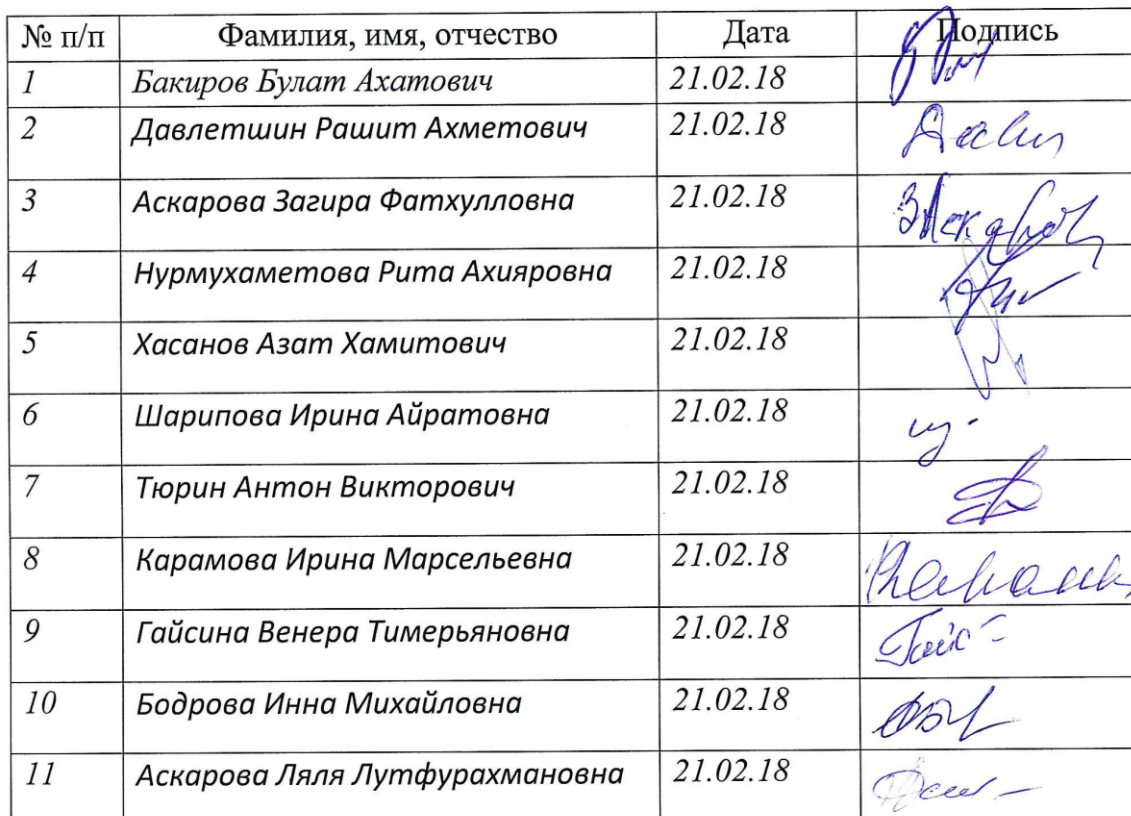 № п/п Фамилия, имя, отчество Дата Подпись
1 Бакиров Булат Ахатович 21.02.18
2 Давлетшин Рашит Ахметович 21.02.18
3 Аскарова Загира Фатхулловна 21.02.18
4 Нурмухаметова Рита Ахияровна 21.02.18
5 Хасанов Азат Хамитович 21.02.18
6 Шарипова Ирина Айратовна 21.02.18
7 Тюрин Антон Викторович 21.02.18
8 Карамова Ирина Марсельевна 21.02.18
9 Гайсина Венера Тимерьяновна 21.02.18
10 Бодрова Инна Михайловна 21.02.18
11 Аскарова Ляля Лутфурахмановна 21.02.18